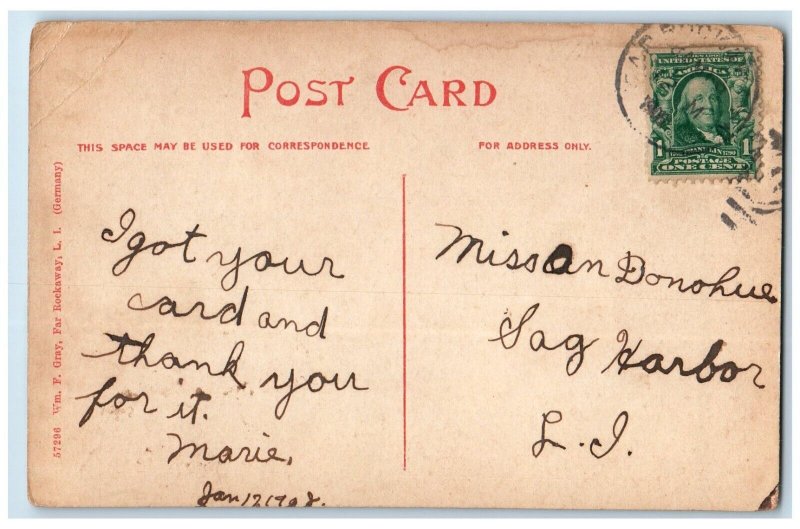 POST CARD
THIS SPACE MAY BE USED FOR CORRESPONDENCE
FOR ADDRESS ONLY.
UNITED STATES OF
AMERICA
1 1
POSTAGE
ONE CENT
57296 Wm. F. Gray, Far Rockaway, L. I. (Germany)
I got your
card and
thank you
for it.
Marie,
Jan 12 1908.
Miss An Donohue
Sag Harbor
L. I.